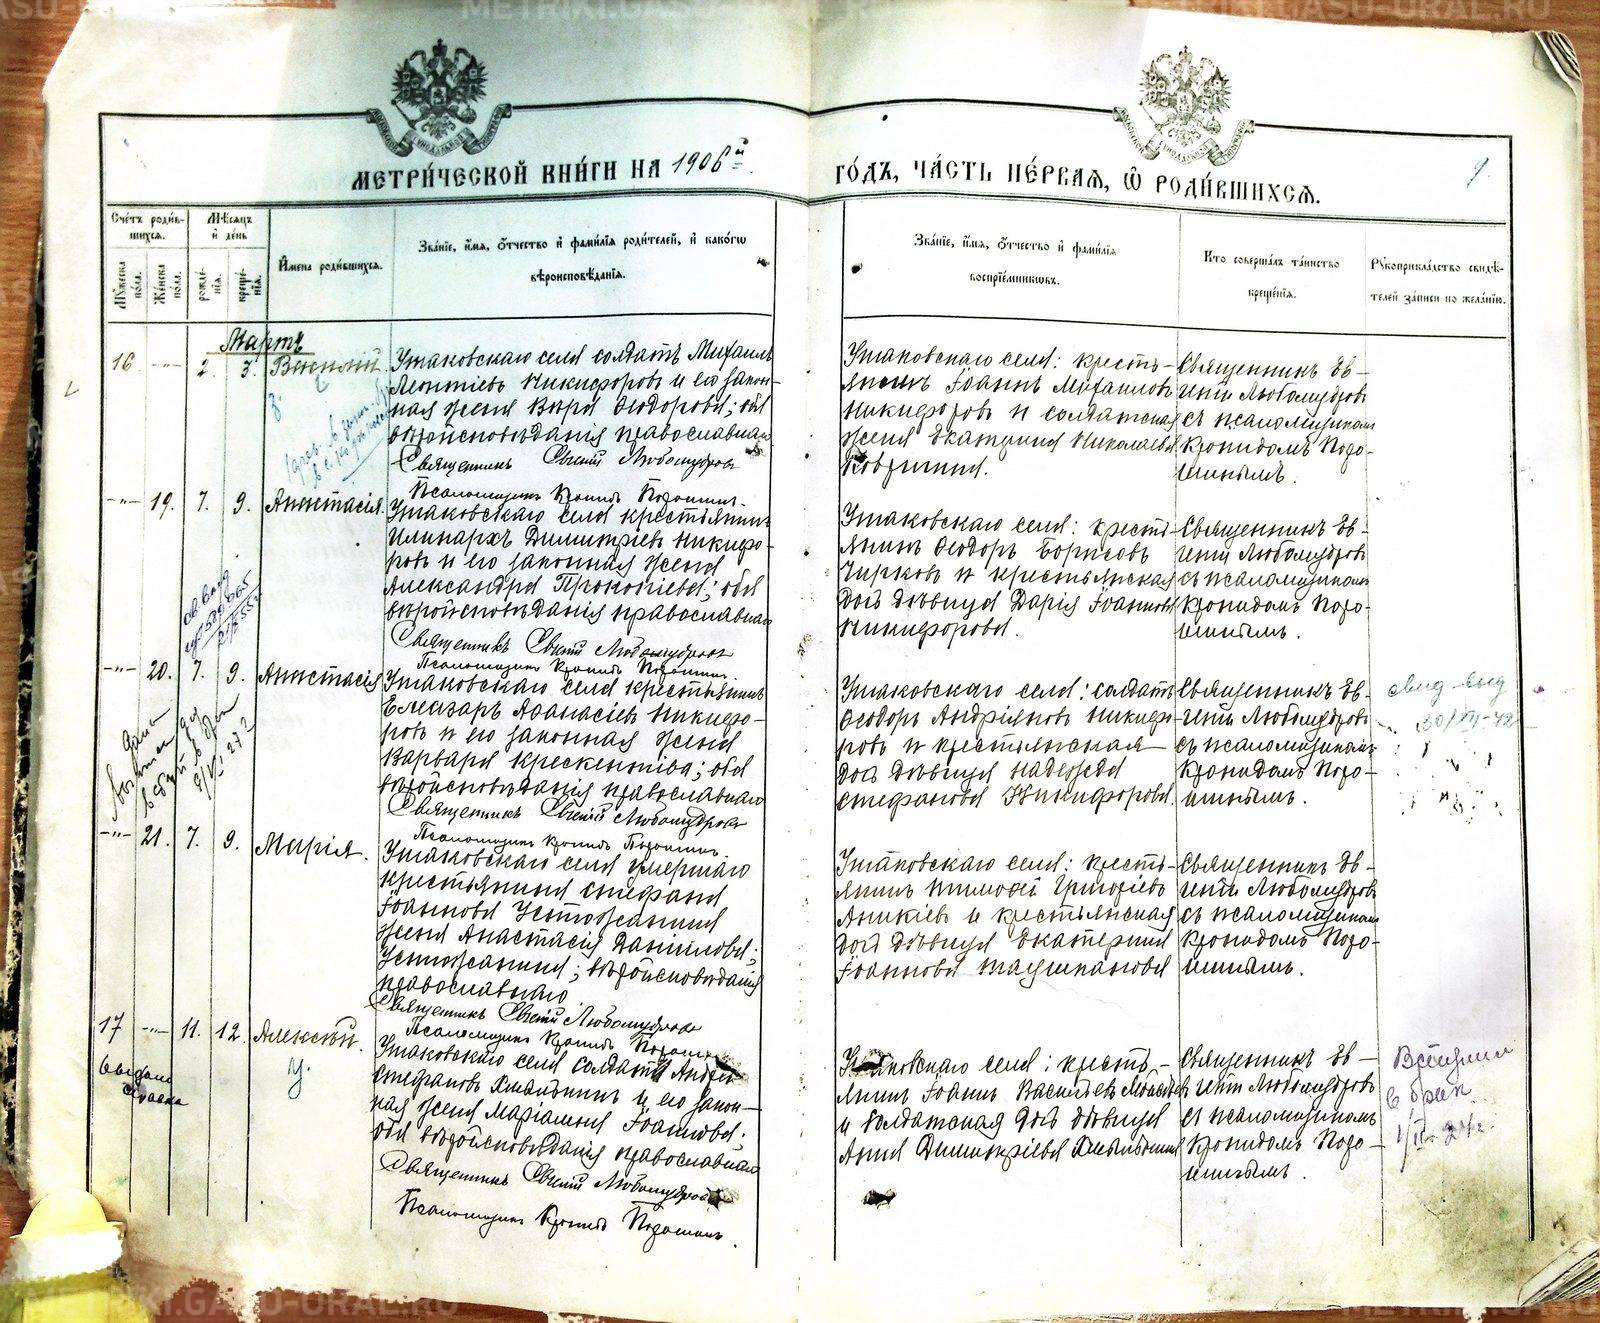 METRIKI.GASU-URAL.RU
METRIKI.GASU-URAL.RU
МЕТРИ́ЧЕСКОЙ КНИ́ГИ НА 1906й
ГО́ДЪ, ЧА́СТЬ ПЕ́РВАЯ, Ѿ РОДИ́ВШИХСЯ.
9.
Сче́тъ роди́в-
шихся.
Мѣсяцъ
и҆ де́нь
Му́жеска по́ла.
Же́нска по́ла.
рожде́-
нїя.
креще́-
нїя.
И҆мена роди́вшихся.
Зва́нїе, и҆́мя, ѻ҆́тчество и҆ фами́лїя роди́телей, и҆ како́гѡ
вѣроисповѣ́данїя.
Зва́нїе, и҆́мя, ѻ҆́тчество и҆ фами́лїя
воспрїе́мниковъ.
Кто̀ соверша́лъ та́инство
креще́нїя.
Рꙋкоприкла́дство свидѣ́-
телей за́писи по жела́нїю.
Мартъ
16 -"- 2. 3. Василий
Ушаковскаго села солдатъ Михаилъ
Леонтіевъ Никифоровъ и его закон-
ная жена Вѣра Ѳеодорова; оба
вѣроисповѣданія православнаго
Священникъ Евгеній Любомудровъ
Псаломщикъ Кронидъ
Ушаковскаго села: кресть-
янинъ Іоаннъ Михаиловъ
Никифоровъ и солдатская
жена Екатерина Николаева
Священникъ Ев-
геній Любомудровъ
съ псаломщикомъ
Кронидомъ Поро-
шинымъ.
-"- 19. 7. 9. Анастасія
Ушаковскаго села крестьянинъ
Илинархъ Димитріевъ Никифо-
ровъ и его законная жена
Александра Прокопіева; оба
вѣроисповѣданія православнаго
Священникъ Евгеній Любомудровъ
Псаломщикъ Кронидъ
Ушаковскаго села: кресть-
янинъ Ѳеодоръ Борисовъ
Чирковъ и крестьянская
дочь дѣвица Дарія Іоаннова
Никифорова.
Священникъ Ев-
геній Любомудровъ
съ псаломщикомъ
Кронидомъ Поро-
шинымъ.
-"- 20. 7. 9. Анастасія
Ушаковскаго села крестьянинъ
Елеазаръ Аѳанасіевъ Никифо-
ровъ и его законная жена
Варвара Крескентіева; оба
вѣроисповѣданія православнаго
Священникъ Евгеній Любомудровъ
Псаломщикъ Кронидъ
Ушаковскаго села: солдатъ
Ѳеодоръ Андріановъ Никифо-
ровъ и крестьянская
дочь дѣвица Надежда
Стефанова Никифорова.
Священникъ Ев-
геній Любомудровъ
съ псаломщикомъ
Кронидомъ Поро-
шинымъ.
свид выд
-"- 21. 7. 9. Марія.
Ушаковскаго села умершаго
крестьянина Стефана
Іоаннова Устюжанина
жена Анастасія Даниилова
Устюжанина; вѣроисповѣданія
православнаго
Священникъ Евгеній Любомудровъ
Псаломщикъ Кронидъ
Ушаковскаго села: кресть-
янинъ Тимоѳей Григоріевъ
Аникіевъ и крестьянская
дочь дѣвица Екатерина
Іоаннова Таушканова
Священникъ Ев-
геній Любомудровъ
съ псаломщикомъ
Кронидомъ Поро-
шинымъ.
17 -"- 11. 12. Алексѣй.
у.
выдана
справка
Ушаковскаго села солдатъ Андрей
Стефановъ и его закон-
ная жена Маріамна Іоаннова;
оба вѣроисповѣданія православнаго
Священникъ Евгеній Любомудровъ
Псаломщикъ Кронидъ
Ушаковскаго села: кресть-
янинъ Іоаннъ Васильевъ
и солдатская дочь дѣвица
Анна Димитріева
Священникъ Ев-
геній Любомудровъ
съ псаломщикомъ
Кронидомъ Поро-
шинымъ.
Вступил
в брак
METRIKI.GASU-URAL.RU
METRIKI.GASU-URAL.RU